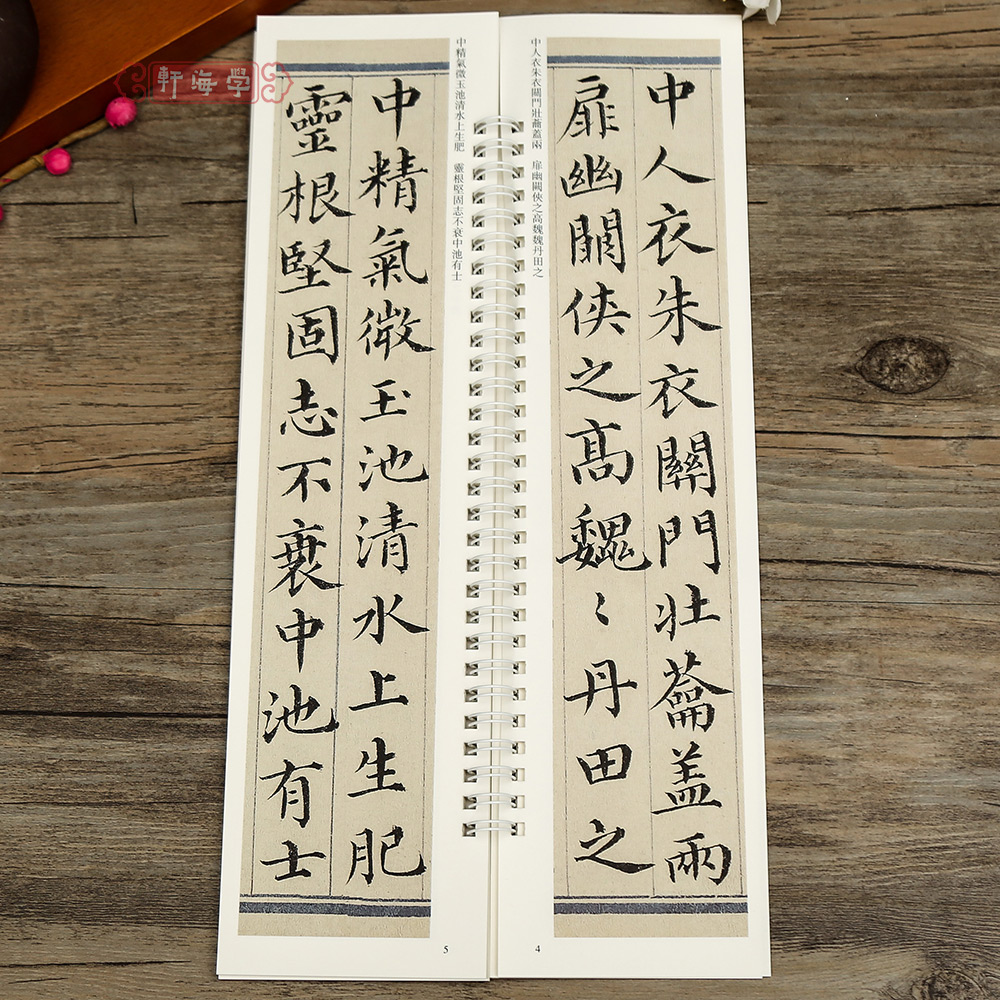 軒海學
中人衣朱衣關門壯蘥蓋兩 扉幽闕俠之高魏魏丹田之
中人衣朱衣關門壯蘥蓋兩
扉幽關俠之高魏〻丹田之
4
中精氣微玉池清水上生肥 靈根堅固志不衰中池有士
中精氣微玉池清水上生肥
靈根堅固志不衰中池有士
5